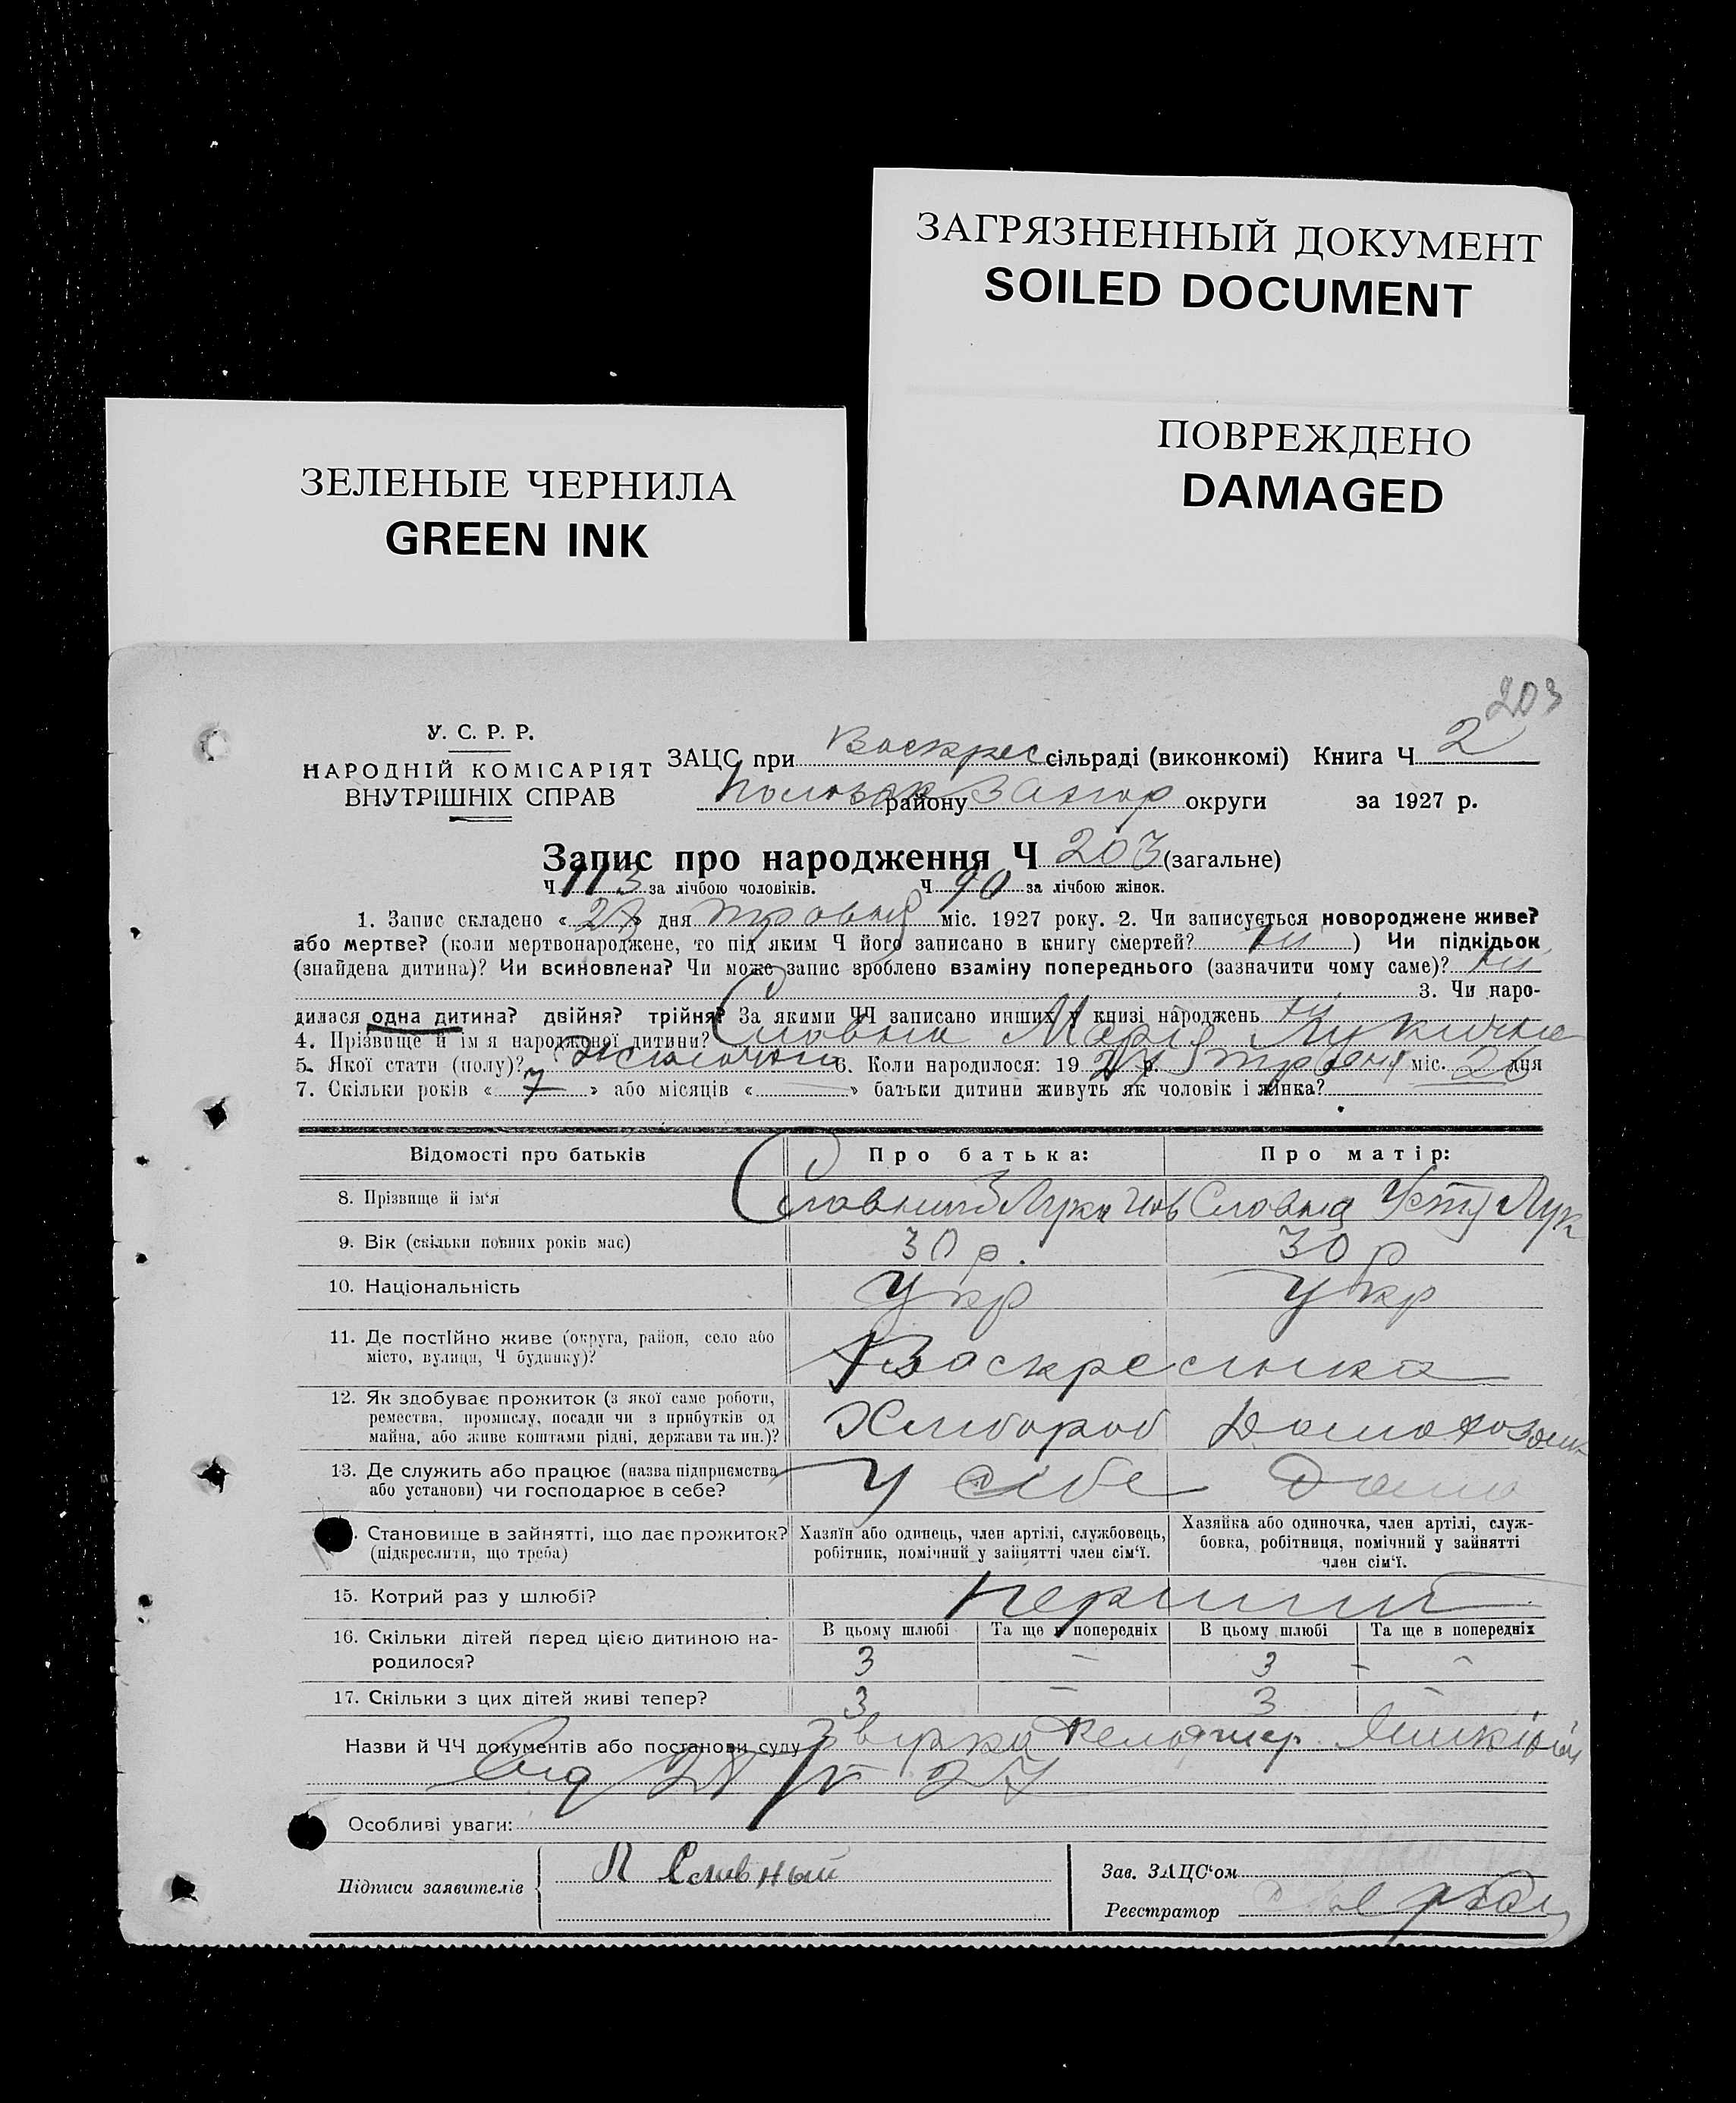 ЗАГРЯЗНЕННЫЙ ДОКУМЕНТ
SOILED DOCUMENT
ПОВРЕЖДЕНО
DAMAGED
ЗЕЛЕНЫЕ ЧЕРНИЛА
GREEN INK
203
У. С. Р. Р.
НАРОДНІЙ КОМІСАРІЯТ
ВНУТРІШНІХ СПРАВ
ЗАЦС при Воскрес сільраді (виконкомі) Книга Ч 2
району Запор округи за 1927 р.
Запис про народження Ч 203 (загальне)
Ч 113 за лічбою чоловіків. Ч 90 за лічбою жінок.
1. Запис складено « 27 » дня травня міс. 1927 року. 2. Чи записується новороджене живе?
або мертве? (коли мертвонароджене, то під яким Ч його записано в книгу смертей? ні ) Чи підкідьок
(знайдена дитина)? Чи всиновлена? Чи може запис зроблено взаміну попереднього (зазначити чому саме)? ні
3. Чи наро-
дилася одна дитина? двійня? трійня? За якими ЧЧ записано инших у книзі народжень ні
4. Прізвище й ім я народженої дитини? Славна Марія Лукична
5. Якої стати (полу)? 6. Коли народилося: 19 27 р. травня міс. 26 дня
7. Скільки років « 7 » або місяців « » батьки дитини живуть як чоловік і жінка?
Відомості про батьків
Про батька:
Про матір:
8. Прізвище й ім'я
Славний Лука Славна Уст Лук
9. Вік (скільки повних років має)
30 р.
30 р
10. Національність
Укр
Укр
11. Де постійно живе (округа, район, село або
місто, вулиця, Ч будинку)?
Воскресенка
12. Як здобуває прожиток (з якої саме роботи,
ремества, промислу, посади чи з прибутків од
майна, або живе коштами рідні, держави та ин.)?
Хлибороб
13. Де служить або працює (назва підприємства
або установи) чи господарює в себе?
У себе
Дома
Становище в зайнятті, що дає прожиток?
(підкреслити, що треба)
Хазяїн або одинець, член артілі, службовець,
робітник, помічний у зайнятті член сім'ї.
Хазяйка або одиночка, член артілі, служ-
бовка, робітниця, помічний у зайнятті
член сім'ї.
15. Котрий раз у шлюбі?
перший
16. Скільки дітей перед цією дитиною на-
родилося?
В цьому шлюбі
Та ще в попередніх
В цьому шлюбі
Та ще в попередніх
3 – 3 – –
17. Скільки з цих дітей живі тепер?
3 – 3 –
Назви й ЧЧ документів або постанови суду
від 27/V 27
Особливі уваги:
Підписи заявителів
Л Славный
Зав. ЗАЦС'ом
Реєстратор